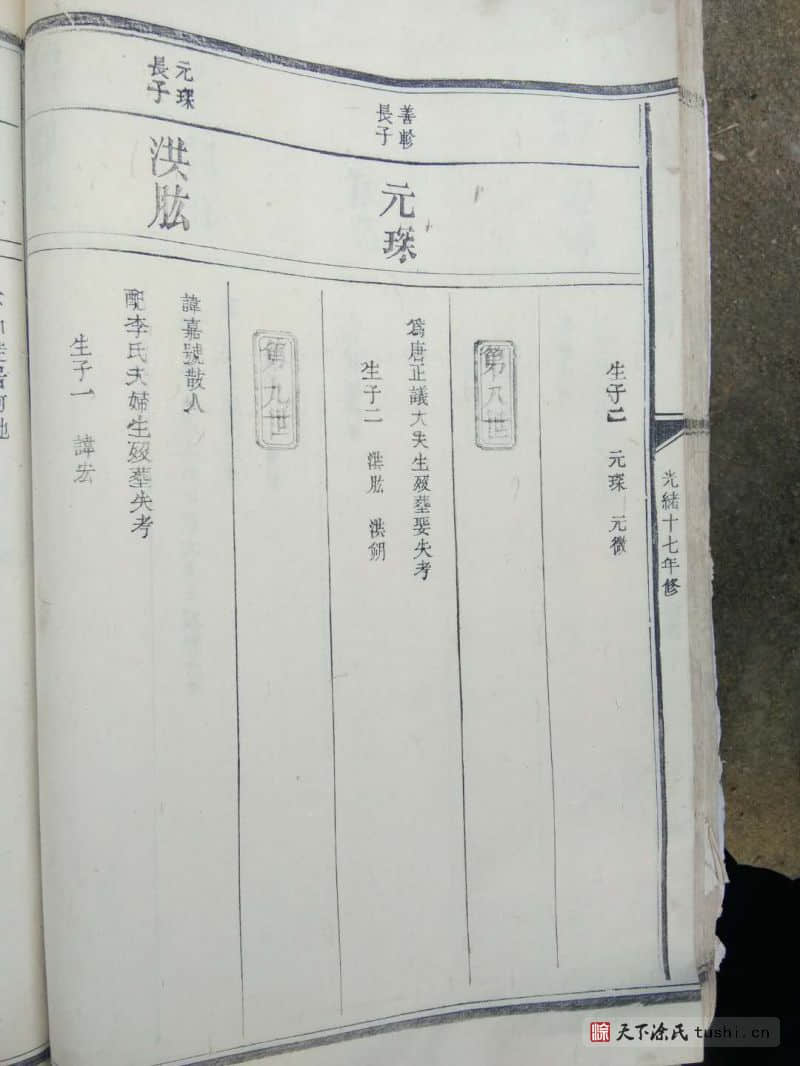 光緒十七年修
生子二 元琛 元微
第八世
善軫長子
元琛
為唐正議大夫生歿塟娶失考
生子二 洪肱 洪朔
第九世
元琛長子
洪肱
諱嘉號散人
配李氏夫婦生歿塟失考
生子一 諱宏
天下涂氏 tushi.cn